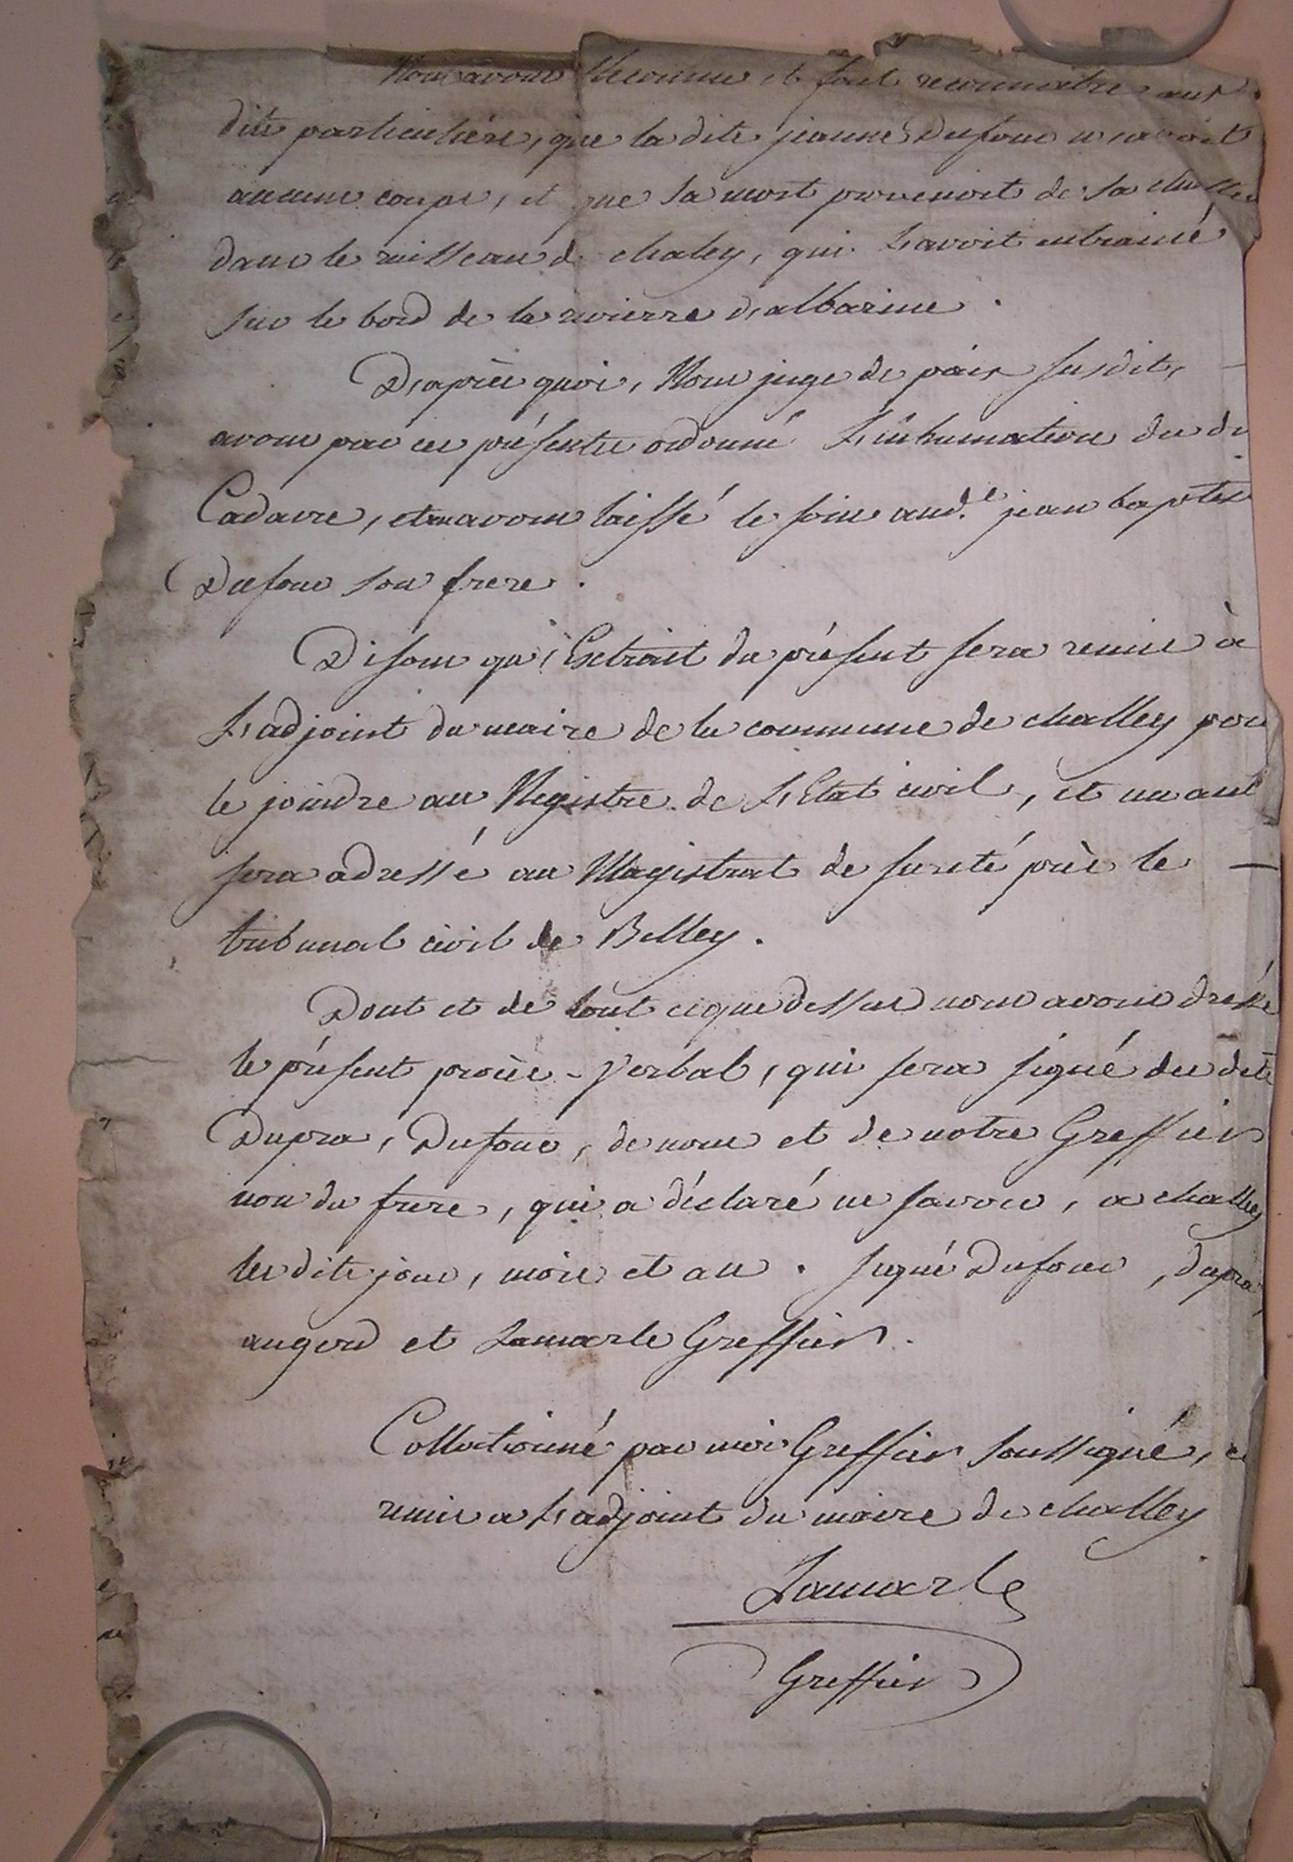 Nous avons Reconnu et fait reconnaitre aux
dits particuliers, que la dite jeanne Dufour n'avoit
aucuns coups, et que sa mort provenoit de sa chutte
dans le ruisseau de chaley, qui L'avoit entrainé
sur le bord de la rivierre d'albarine.
D'après quoi, Nous juge de paix susdit,
avons par ces présentes ordonné L'inhumation du di
Cadavre, et en avons laissé le soin aud.t jean baptiste
Dufour son frere.
Disons qu'Extrait du présent sera remis à
L'adjoint du maire de la commune de challey pour
le joindre au Registre de L'Etat civil, et un aut
sera adressé au Magistrat de sureté près le
tribunal civil de Belley.
Dont et de tout ce que dessus nous avons dressé
le présent procès-verbal, qui sera signé des dits
Dupra, Dufour, de nous et de notre Greffier
non du frere, qui a déclaré ne savoir, a challey
les dits jour, mois et an. signé Dufour, dupra,
augerd et Lamarle Greffier.
Collationné par moi Greffier soussigné, e
remis a L'adjoint du maire de challey
Lamarle
Greffier